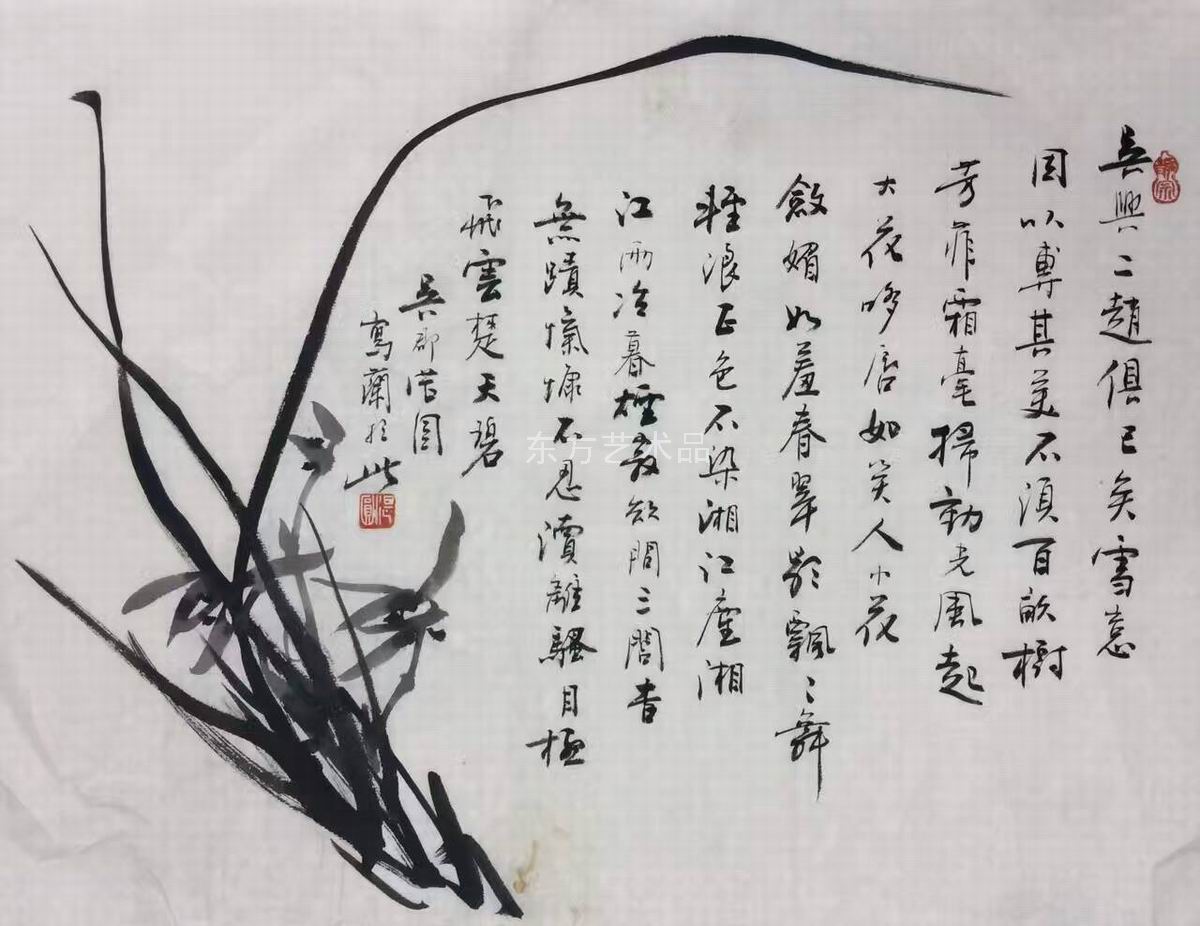 吳興二趙俱已矣雪窓
因以專其美不須百畝樹
芳菲霜毫掃動光風起
大花哆唇如笑人小花
斂媚如羞春翠影飄〻舞
輕浪正色不染湘江塵湘
江雨冷暮煙寂欲問三閭杳
無蹟慷慨不忍讀離騷目極
飛雲楚天碧
吳郡
寫蘭於此
东方艺术品